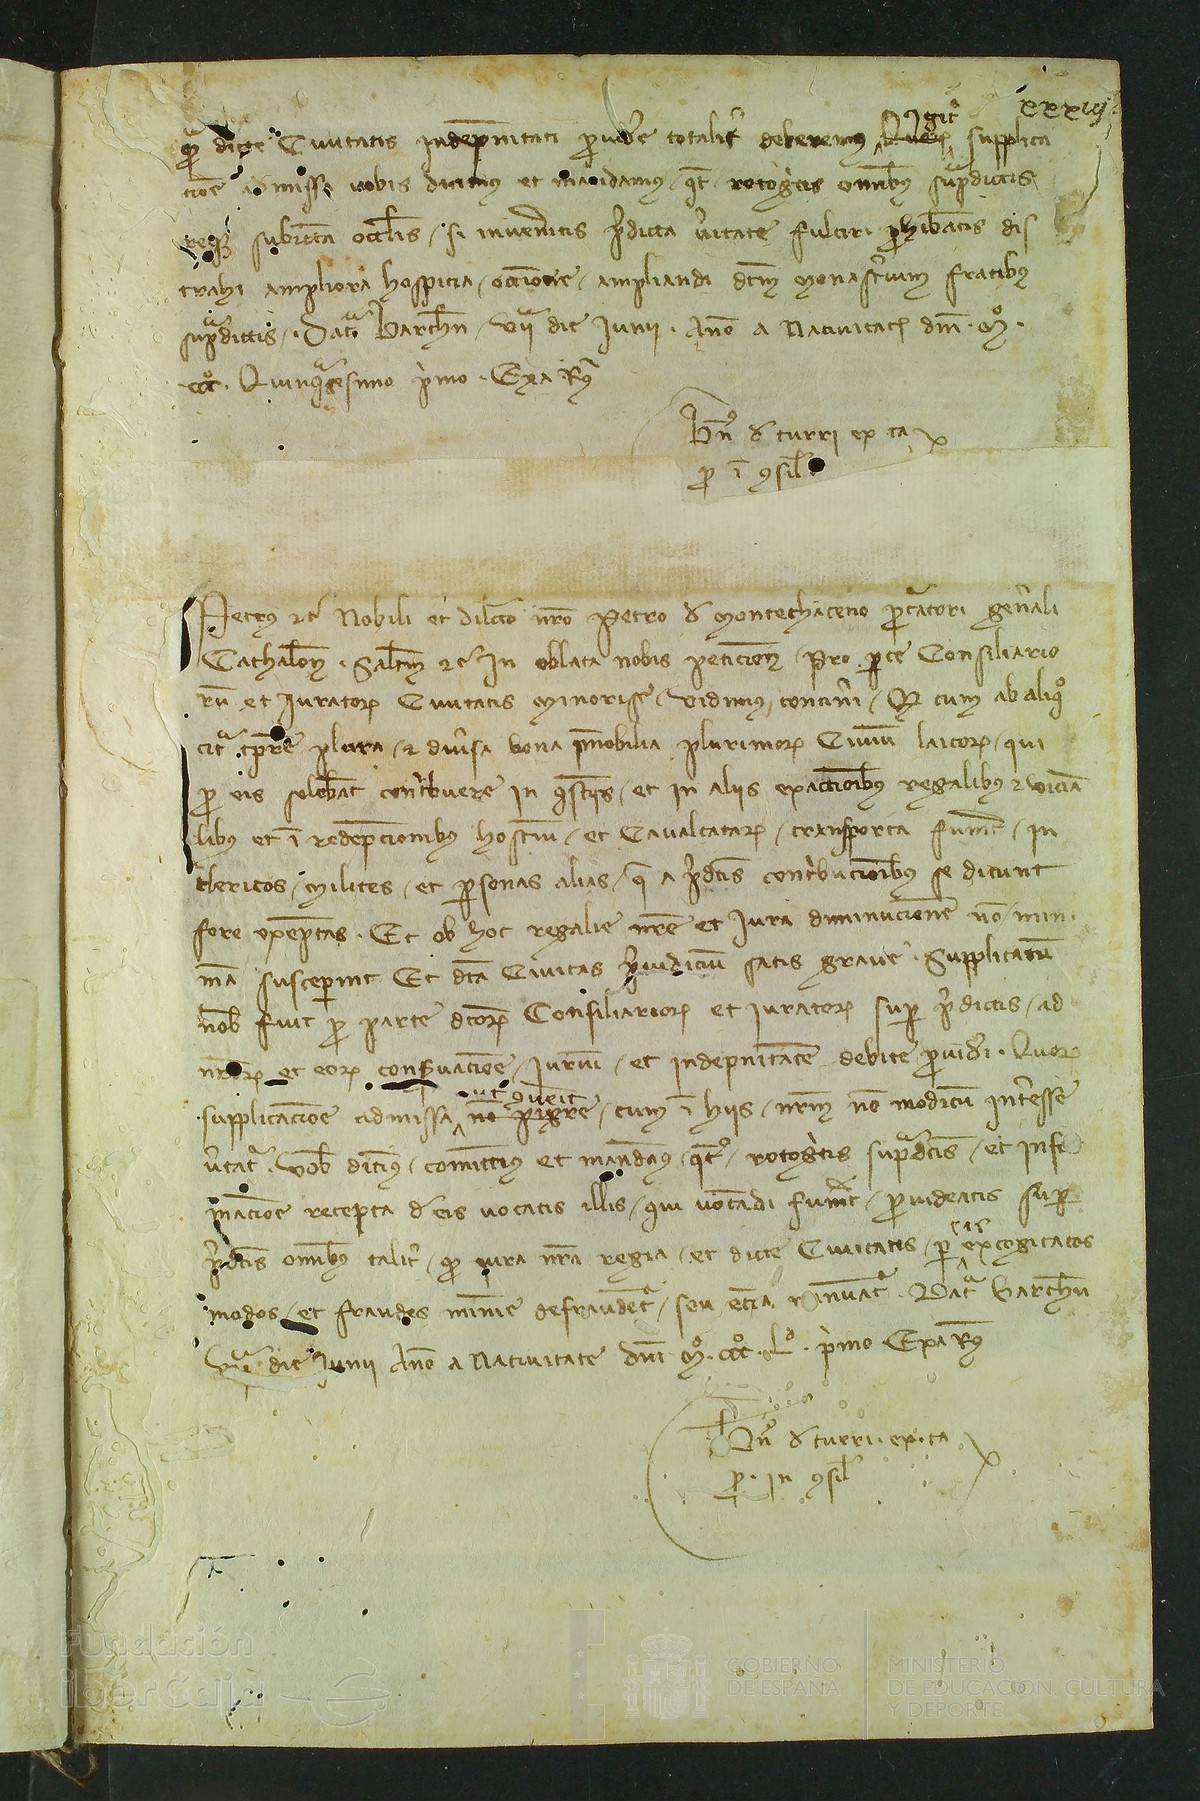 xxxiij
dicte Civitatis indepnitati providere totalit deberemus Igit supplica
cioe admissa vobis dicimus et mandamus qt recogitis omibus supradictis
subiecta occlis si inveneritis pdicta vitate fulciri phibeatis dis
trahi ampliora hospicia occione ampliandi dcm monasterium fratribus
supradictis. Data Barchn vii die Junii. Anno a Nativitate dni. mo.
ccco. Quinquagesimo primo. Exa Rus
Bn d turri ex ca
p in 9silio
Petrus etc Nobili et dilecto nro Petro d Montechateno procuratori generali
Cathalon. Saltm etc In oblata nobis peticione pro parte Consiliario
rum et Juratorum Civitatis Minorise vidimus contineri Qd cum ab aliquo
citra tempore plura et diversa bona immobilia plurimorum Civium laicorum qui
pro eis solebant contribuere in questiis et in aliis exaccionibus regalibus et vicina
libus et in redempcionibus hostium et Cavalcatarum transporta fuerint in
clericos milites et personas alias que a pdictis contribucionibus se dicunt
fore exemptas. Et ob hoc regalie nre et Jura diminucionem non mini
mam susceperint Et dta Civitas preiudicium satis grave. Supplicatum
nob fuit pro parte dictorum Consiliariorum et Juratorum super pdictis ad
nrorum et eorum conservacione Jurium et indepnitate debite provideri. Quorum
supplicacione admissa ut convenit cum in hiis nrm non modicum interesse
vertatur. Vob dicimus comittimus et mandamus qt recogitis supradictis et infor
macione recepta d eis vocatis illis qui vocandi fuerint provideatis super
pdictis omibus taliter quod iura nra regia et dicte Civitatis per tales excogitatos
modos et fraudes minime defraudentur seu eciam minuantur. Data Barchn
viia die Junii Anno a Nativitate dni mo. ccco. Lo. primo Exa Rus
Bn d turri. ex. ca
p. in 9silio
Fundación
iberCaja
GOBIERNO
DE ESPAÑA
MINISTERIO
DE EDUCACIÓN, CULTURA
Y DEPORTE